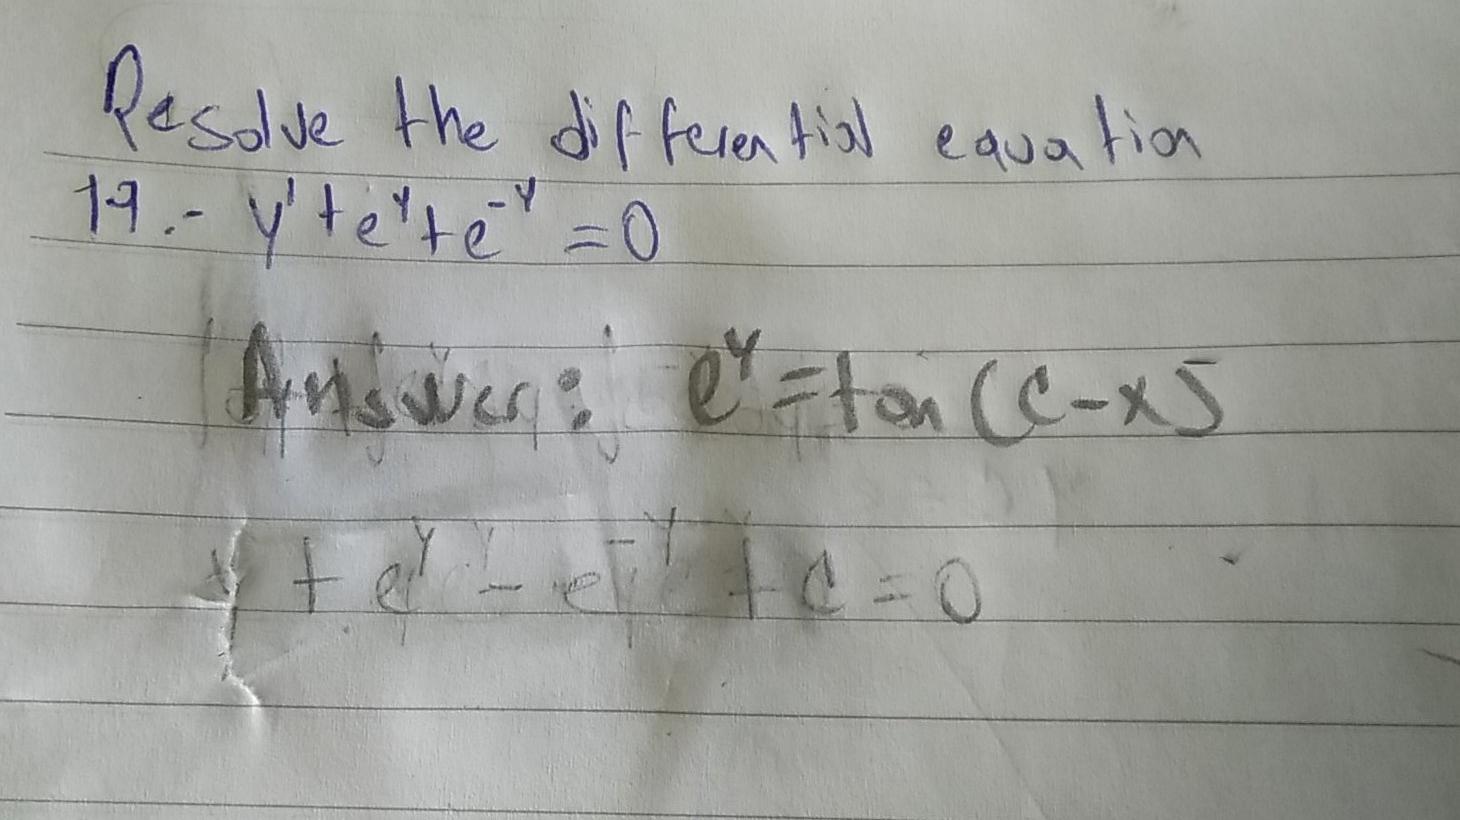 Resolve the differential equation
19.- y' + e^y + e^-y = 0
Answer: e^y = tan (c-x)
y + e^y - e^-y + c = 0